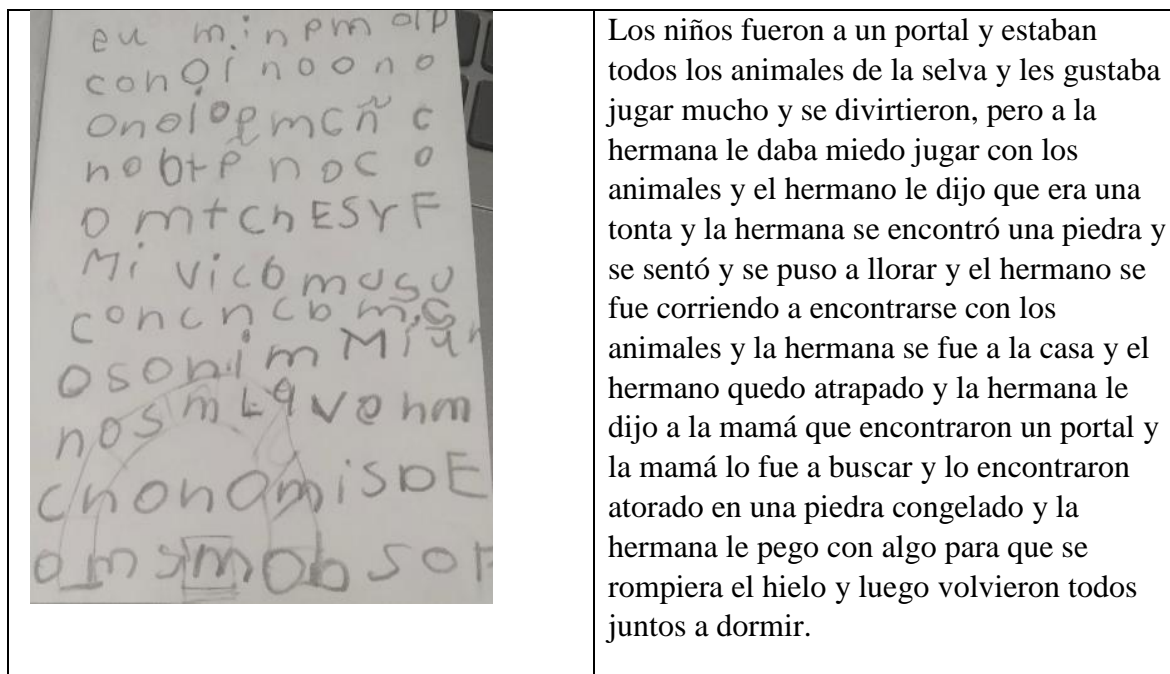 eu minpm olp
conoínoono
onolopmcñ c
nobtp noc o
o mtchESYF
Mi vicomusu
concncomis
osonim Miun
nosmLqvehm
chonomisDE
omsmobsof
Los niños fueron a un portal y estaban
todos los animales de la selva y les gustaba
jugar mucho y se divirtieron, pero a la
hermana le daba miedo jugar con los
animales y el hermano le dijo que era una
tonta y la hermana se encontró una piedra y
se sentó y se puso a llorar y el hermano se
fue corriendo a encontrarse con los
animales y la hermana se fue a la casa y el
hermano quedo atrapado y la hermana le
dijo a la mamá que encontraron un portal y
la mamá lo fue a buscar y lo encontraron
atorado en una piedra congelado y la
hermana le pego con algo para que se
rompiera el hielo y luego volvieron todos
juntos a dormir.